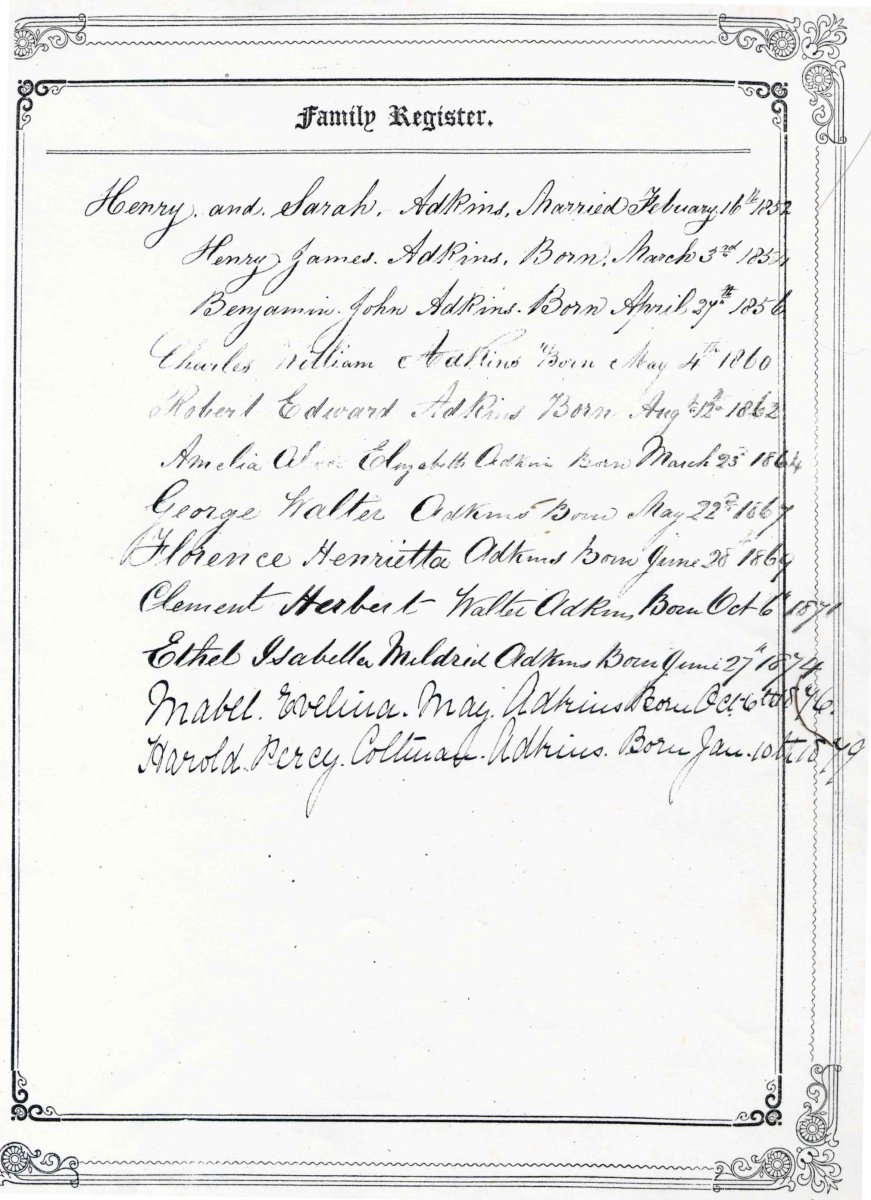 Family Register.
Henry. and. Sarah. Adkins. Married Febuary 16th 1852
Henry James. Adkins. Born. March 3rd 1854
Benjamin. John Adkins. Born April 27th 1856
Charles William Adkins Born May 4th 1860
Robert Edward Adkins Born Augt 12th 1862
Amelia Elizabeth Adkins Born March 25 1864
George Walter Adkins Born May 22nd 1867
Florence Henrietta Adkins Born June 28th 1869
Clement Herbert Walter Adkins Born Oct 6th 1871
Ethel Isabella Mildrid Adkins Born June 27th 1874
Mabel. Evelina. May. Adkins Born Oct. 6th 1876.
Harold. Percy. Coltman. Adkins. Born Jan. 10th 1879